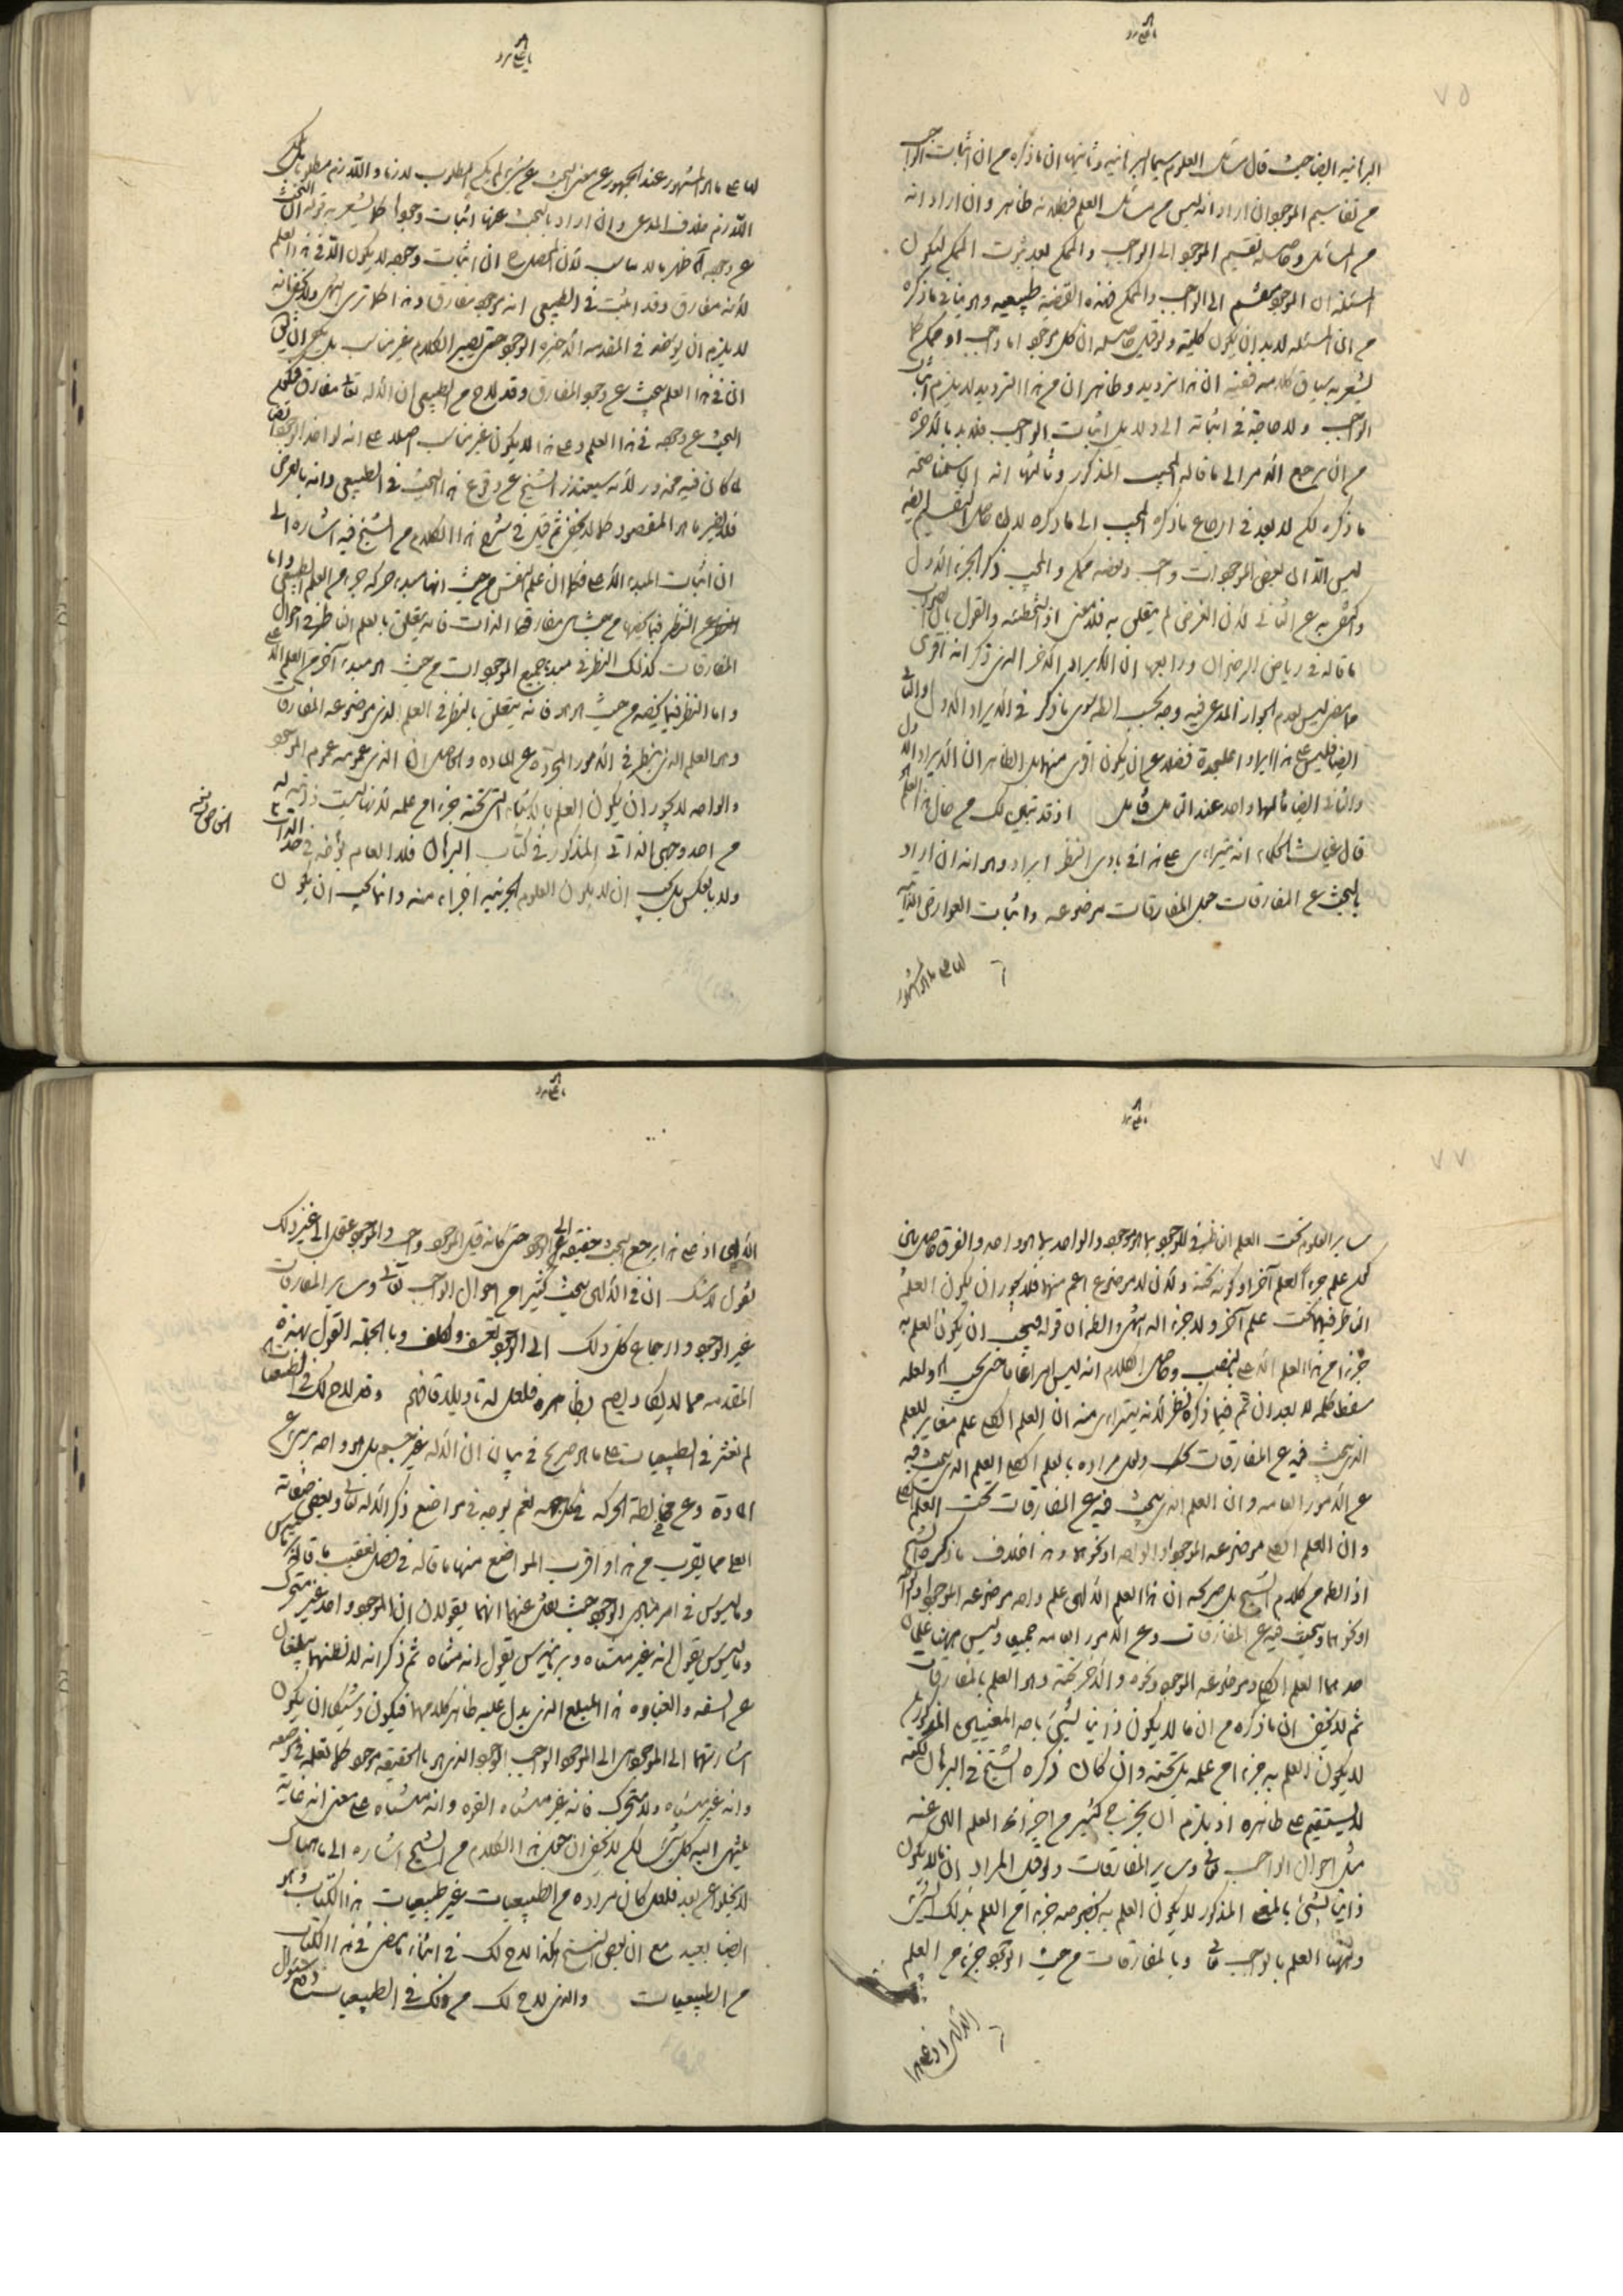 البرهانيه ايضا حيث قال مسائل العلوم سيما البرهانية وثانيها ان ما ذكره من ان اثبات الواجب
من تقاسيم الموجود ان اراد انه ليس من مسائل العلم فبطلانه ظاهر وان اراد انه
من المسائل وحاصله تقسيم الموجود الى الواجب والممكن بعد ثبوت الممكن ليكون
المسئلة ان الموجود ينقسم الى الواجب والممكن فهذه القضية طبيعيه وهو ينافي ما ذكره
من ان المسئله لابد ان يكون كلية ولو قيل حاصله ان كل موجود اما واجب او ممكن كما
يشعر به سياق كلامه ففيه ان هذا ترديد وظاهر ان من هذا الترديد لا يلزم اثبات
الواجب ولا حاجة في اثباته الى دليل اثبات الواجب فلابد بالاخرة
من ان يرجع الامر الى ما قاله المجيب المذكور وثالثها انه ان سلمنا صحة
ما ذكره لكن لا بعد في ارجاع ما ذكره المجيب الى ما ذكره لان حاصل التقسيم ايضا
ليس الا ان بعض الموجودات واجب وبعضه ممكن والمجيب ذكر الجزء الاول
واكتفى به عن الثاني لان الغرض لم يتعلق به فلا معنى اذ التخطئه والقول بان الصواب
ما قاله في رياض الرضوان ورابعها ان الايراد الاخر الذي ذكر انه اقوى
حاصل ليس لعدم الجواز المدعى فيه وجه بحسب الظ سوى ما ذكر في الايراد الاول والثاني
ايضا فليس هذا ايرادا عليحدة فضلا عن ان يكون اقوى منهما بل الظاهر ان الايراد الاول
والثاني ايضا مآلهما واحد عند التأمل فتأمل اذ قد تبين لك من حال هذا العلم
قال غياث الحكماء انه يتراءى على هذا في بادى النظر ايراد وهو انه ان اراد
بالبحث عن المفارقات جعل المفارقات موضوعه واثبات العوارض الذاتيه
لها على ما هو المشهور
لها على ما هو المشهور عند الجمهور من معنى البحث عن شيء لم يكن المطلوب لازما واللازم مطلوبا بل
اللازم خلاف المدعى وان اراد بالبحث عنها اثبات وجودها كما يشعر به قوله ان البحث
عن وجوده ظهر ما لا يناسب لان الحاصل ان اثبات وجوده لا يكون الا في هذا العلم
لانه مفارق وقد اثبت في الطبيعى انه موجود مفارق وهذا كما ترى انتهى ولا يخفى انه
لا يلزم ان يؤخذ في المقدمه الاخيرة الوجود حتى يصير الكلام غير مناسب بل يكفي ان يقال
ان في هذا العلم يبحث عن وجود المفارق وقد لاح من الطبيعى ان الاله تعالى مفارق فيكون
البحث عن وجوده في هذا العلم وعلى هذا لا يكون غير مناسب اصلا على انه لو اخذ الوجود ايضا
لما كان فيه محذور لانه سيعتذر الشيخ عن وقوع هذا البحث في الطبيعى وانه بالعرض
فلا يضر ما هو المقصود كما لا يخفى ثم قيل في شرح هذا الكلام من الشيخ فيه اشارة الى
ان اثبات المبدء الاعلى فكما ان علم النفس من حيث انها مبدء حركة جزء من العلم الطبيعى واما
النظر فيما يخصها من حيث مفارقة الذات فانه يتعلق بالعلم الناظر في احوال
المفارقات كذلك النظر في مبدء جميع الموجودات من حيث هو مبدء آخر من العلم الاعلى
واما النظر فيما يخصه من حيث هو هو فانه يتعلق بالنظر في العلم الذى موضوعه المفارق
وهو العلم الذى ينظر في الامور المجردة عن المادة والحاصل ان الذى عمومه عموم الموجود
والواحد لا يجوز ان يكون العلم بالاشياء التي تحته جزءا من علمه لانها ليست ذاتية له
من احد وجهى الذاتي المذكور في كتاب البرهان فلا العام يؤخذ في حد الخاص
ولا بالعكس بل يجب ان لا يكون العلوم الجزئيه اجزاء منه وانما يجب ان يكون
سائر العلوم تحت العلم الناظر في الموجود بما هو موجود والواحد بما هو واحد والفرق حاصل بين
كون علم جزء العلم آخر او كونه تحته ولان لا موضوع اعم منهما فلا يجوز ان يكون العلم
الناظر فيهما تحت علم آخر ولا جزء اله انتهى والظ ان قوله فيجب ان يكون العلم به
جزءا من هذا العلم الاعلى بنصب وحاصل الكلام انه ليس امرا عاما حتى يجب هو ولعله
سقط كلمة لا بعد ان ثم فيما ذكره نظر لانه يتراءى منه ان العلم الكلي علم مغاير للعلم
الذى يبحث فيه عن المفارقات ولعل مراده بالعلم الكلي العلم الذى يبحث فيه
عن الامور العامه وان العلم الذى يبحث فيه عن المفارقات تحت العلم الكلي
وان العلم الكلي موضوعه الموجود او الواحد او نحوهما وهذا خلاف ما ذكره الشيخ
اذ الظ من كلام الشيخ بل صريحه ان هذا العلم الالهى علم واحد موضوعه الموجود او الواحد
او نحوهما ويبحث فيه عن المفارقات وعن الامور العامه جميعا وليس ههنا علمان
احدهما العلم الكلي وموضوعه الموجود ونحوه والاخر تحته وهو العلم بالمفارقات
ثم لا يخفى ان ما ذكره من ان ما لا يكون ذاتيا لشىء باحد المعنيين المذكورين
لا يكون العلم به جزءا من علمه بل تحته وان كان ذكره الشيخ في البرهان لكنه
لا يستقيم على ظاهره اذ يلزم ان يخرج كثير من اجزاء العلم الالهى عنه
مثل احوال الواجب تعالى وسائر المفارقات ولو قيل المراد ان ما لا يكون
ذاتيا لشىء بالمعنى المذكور لا يكون العلم به بخصوصه جزءا من العلم بذلك الشىء
وههنا العلم بالواجب تعالى وبالمفارقات من حيث الوجود جزء من العلم
الالهى اذ على هذا
الالهى اذ على هذا يرجع البحث حقيقة الى الوجود حتى كانه قيل الموجود واجب والموجود عقل الى غير ذلك
نقول لا شك ان في الالهى يبحث كثيرا من احوال الواجب تعالى وسائر المفارقات
غير الوجود وارجاع كل ذلك الى الوجود تعسف وتكلف وبالجملة القول بهذه
المقدمه مما لا يكاد يصح بظاهره فلعل له تاويلا فافهم وقد لاح لك في الطبيعيات
لم نعثر في الطبيعيات على ما هو صريح في بيان ان الاله غير جسم بل هو واحد برىء عن
المادة وعن مخالطة الحركة في كل جهة نعم يوجد في مواضع ذكر الاله تعالى وبعض صفاته
العلى مما يقرب من هذا واقرب المواضع منها ما قاله في فصل تعقيب ما قاله برمانيدس
وماليسوس في امر مبادى الوجود حيث نقل عنهما انهما يقولان ان الموجود واحد غير متحرك
وماليسوس يقول انه غير متناه وبرمانيدس يقول انه متناه ثم ذكر انه لا نظنهما يبلغان
من السفه والغباوه هذا المبلغ الذى يدل عليه ظاهر كلامهما فيكون وشيكا ان يكون
اشارتهما الى الموجود الى الموجود الواجب الوجود الذى هو بالحقيقة موجود كما تعلمه في موضعه
وانه غير متناه ولا متحرك فانه غير متناه القوة وانه متناه على معنى انه غاية
ينتهى اليه كل شىء لكن لا يخفى ان حمل هذا الكلام من الشيخ اشارة الى ما هناك
لا يخلو عن بعد فلعل كان مراده من الطبيعيات غير طبيعيات هذا الكتاب وهو
ايضا بعيد مع ان بعض النسخ هكذا لاح لك في اثناء ما مضى في هذا الكتاب
من الطبيعيات والذى لاح لك من ذلك في الطبيعيات